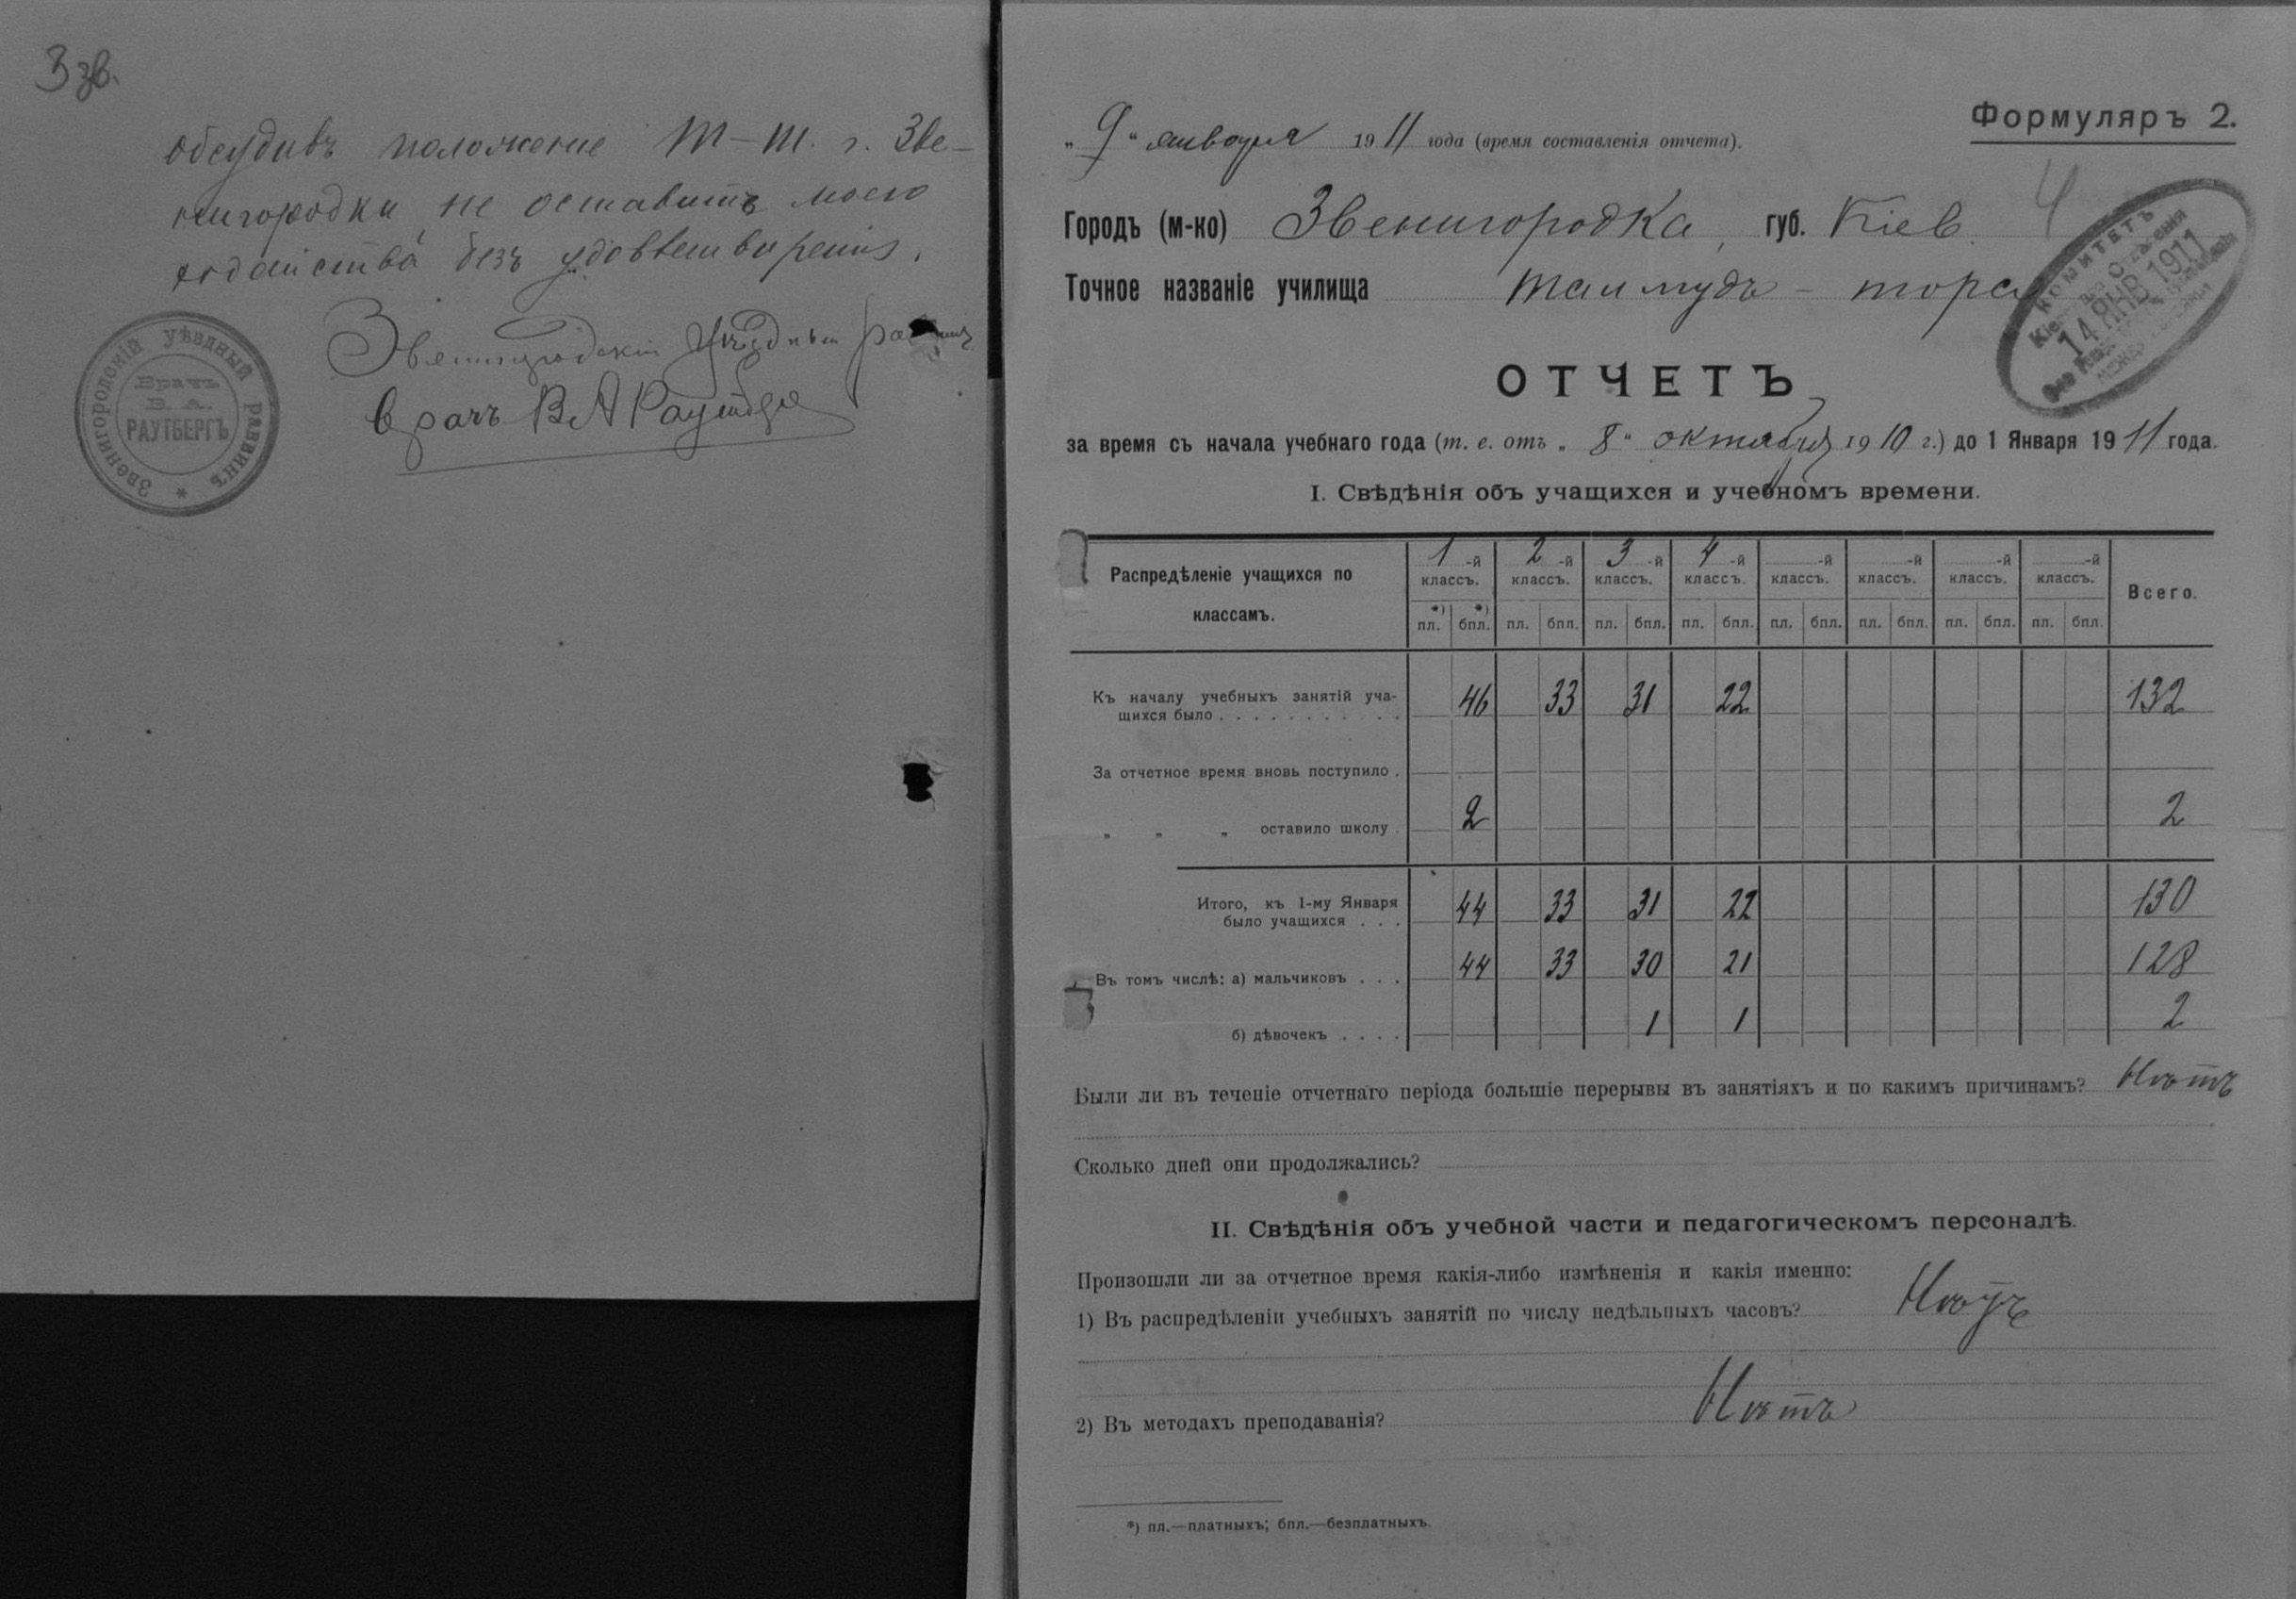 3 зв.
обсудивъ положеніе Т-Т. г. Зве-
нигородки, не оставить моего
ходайства безъ удовлетворенія.
Звенигородскій Уѣздный раввинъ
врачъ В А Раутбергъ
Звенигородскій уѣздный раввинъ *
Врачъ
В. А.
РАУТБЕРГЪ
Формуляръ 2.
„9“ января 1911 года (время составленія отчета).
4
Городъ (м-ко) Звенигородка, губ. Кіев.
Точное названіе училища Талмудъ-тора
КОМИТЕТЪ
14 ЯНВ 1911
ОТЧЕТЪ
за время съ начала учебнаго года (т. е. отъ „8“ октября 1910 г.) до 1 Января 1911 года.
I. Свѣдѣнія объ учащихся и учебномъ времени.
Распредѣленіе учащихся по классамъ. 1-й классъ. 2-й классъ. 3-й классъ. 4-й классъ. -й классъ. -й классъ. -й классъ. -й классъ. Всего.
*) пл. *) бпл. пл. бпл. пл. бпл. пл. бпл. пл. бпл. пл. бпл. пл. бпл. пл. бпл.
Къ началу учебныхъ занятій уча-
щихся было . . . . . . . . . . . 46 33 31 22 132
За отчетное время вновь поступило .
„ „ „ оставило школу . 2 2
Итого, къ 1-му Января
было учащихся . . . 44 33 31 22 130
Въ томъ числѣ: а) мальчиковъ . . . 44 33 30 21 128
б) дѣвочекъ . . . . 1 1 2
Были ли въ теченіе отчетнаго періода большіе перерывы въ занятіяхъ и по какимъ причинамъ? Нѣтъ
Сколько дней они продолжались?
II. Свѣдѣнія объ учебной части и педагогическомъ персоналѣ.
Произошли ли за отчетное время какія-либо измѣненія и какія именно:
1) Въ распредѣленіи учебныхъ занятій по числу недѣльныхъ часовъ? Нѣтъ
2) Въ методахъ преподаванія? Нѣтъ
*) пл.—платныхъ; бпл.—безплатныхъ.